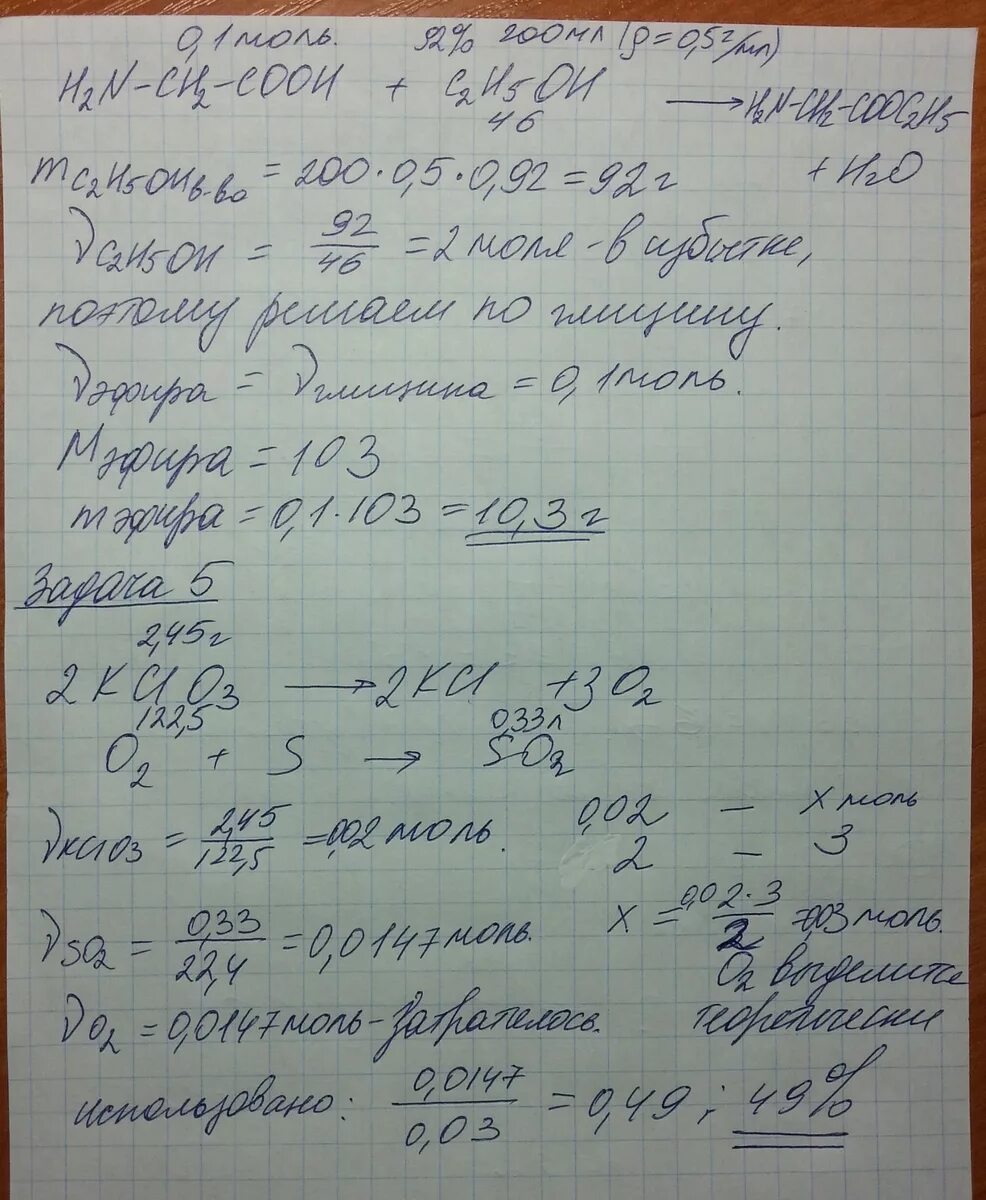 0,1 моль. 92% 200 мл (ρ=0,5 г/мл)
H2N-CH2-COOH + C2H5OH → H2N-CH2-COOC2H5
46
m C2H5OH в-во = 200·0,5·0,92 = 92 г + H2O
ν C2H5OH = 92/46 = 2 моля - в избытке,
поэтому решаем по глицину.
ν эфира = ν глицина = 0,1 моль.
M эфира = 103
m эфира = 0,1·103 = 10,3 г
Задача 5
2,45 г
2KClO3 → 2KCl + 3O2
122,5 0,33 л
O2 + S → SO2
ν KClO3 = 2,45/122,5 = 0,02 моль. 0,02 — x моль
2 — 3
ν SO2 = 0,33/22,4 = 0,0147 моль. x = 0,02·3/2 = 0,03 моль.
O2 выделится
ν O2 = 0,0147 моль - затратилось. теоретически
использовано: 0,0147/0,03 = 0,49; 49%